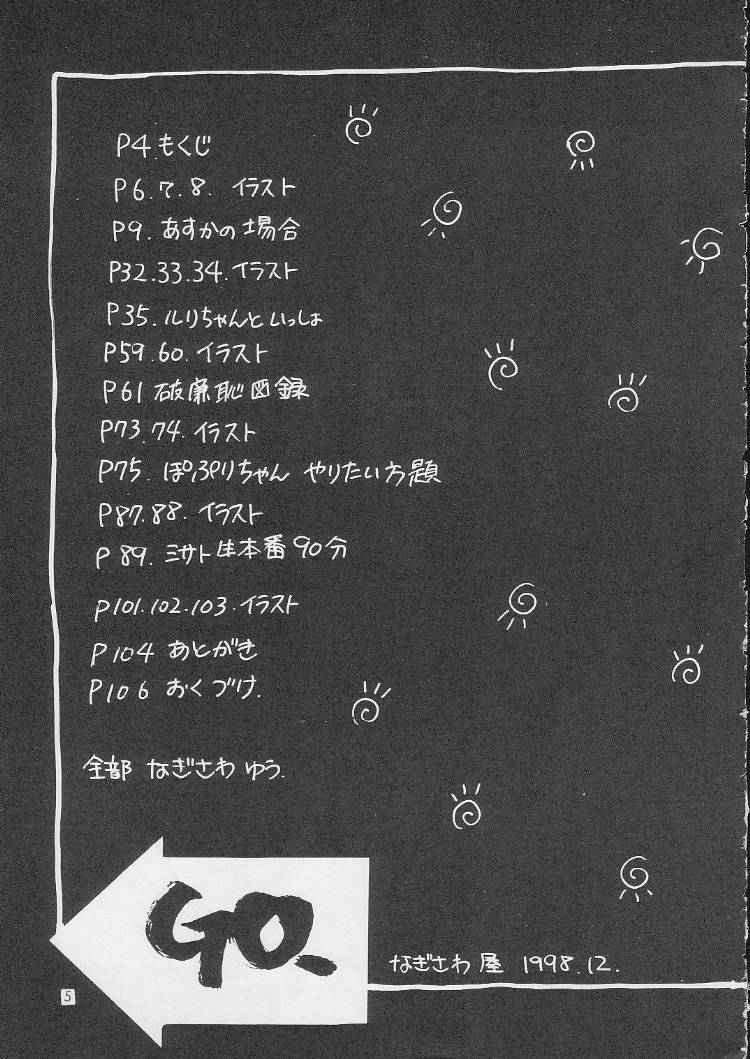 P4.もくじ
P6.7.8. イラスト
P9. あすかの場合
P32.33.34.イラスト
P35.ルリちゃんといっしょ
P59.60.イラスト
P61 破廉恥図録
P73.74.イラスト
P75. ぽぷりちゃん やりたい方題
P87.88.イラスト
P89.ミサト生本番90分
P101.102.103.イラスト
P104 あとがき
P106 おくづけ.
全部 なぎさわ ゆう.
GO.
なぎさわ屋 1998.12.
5